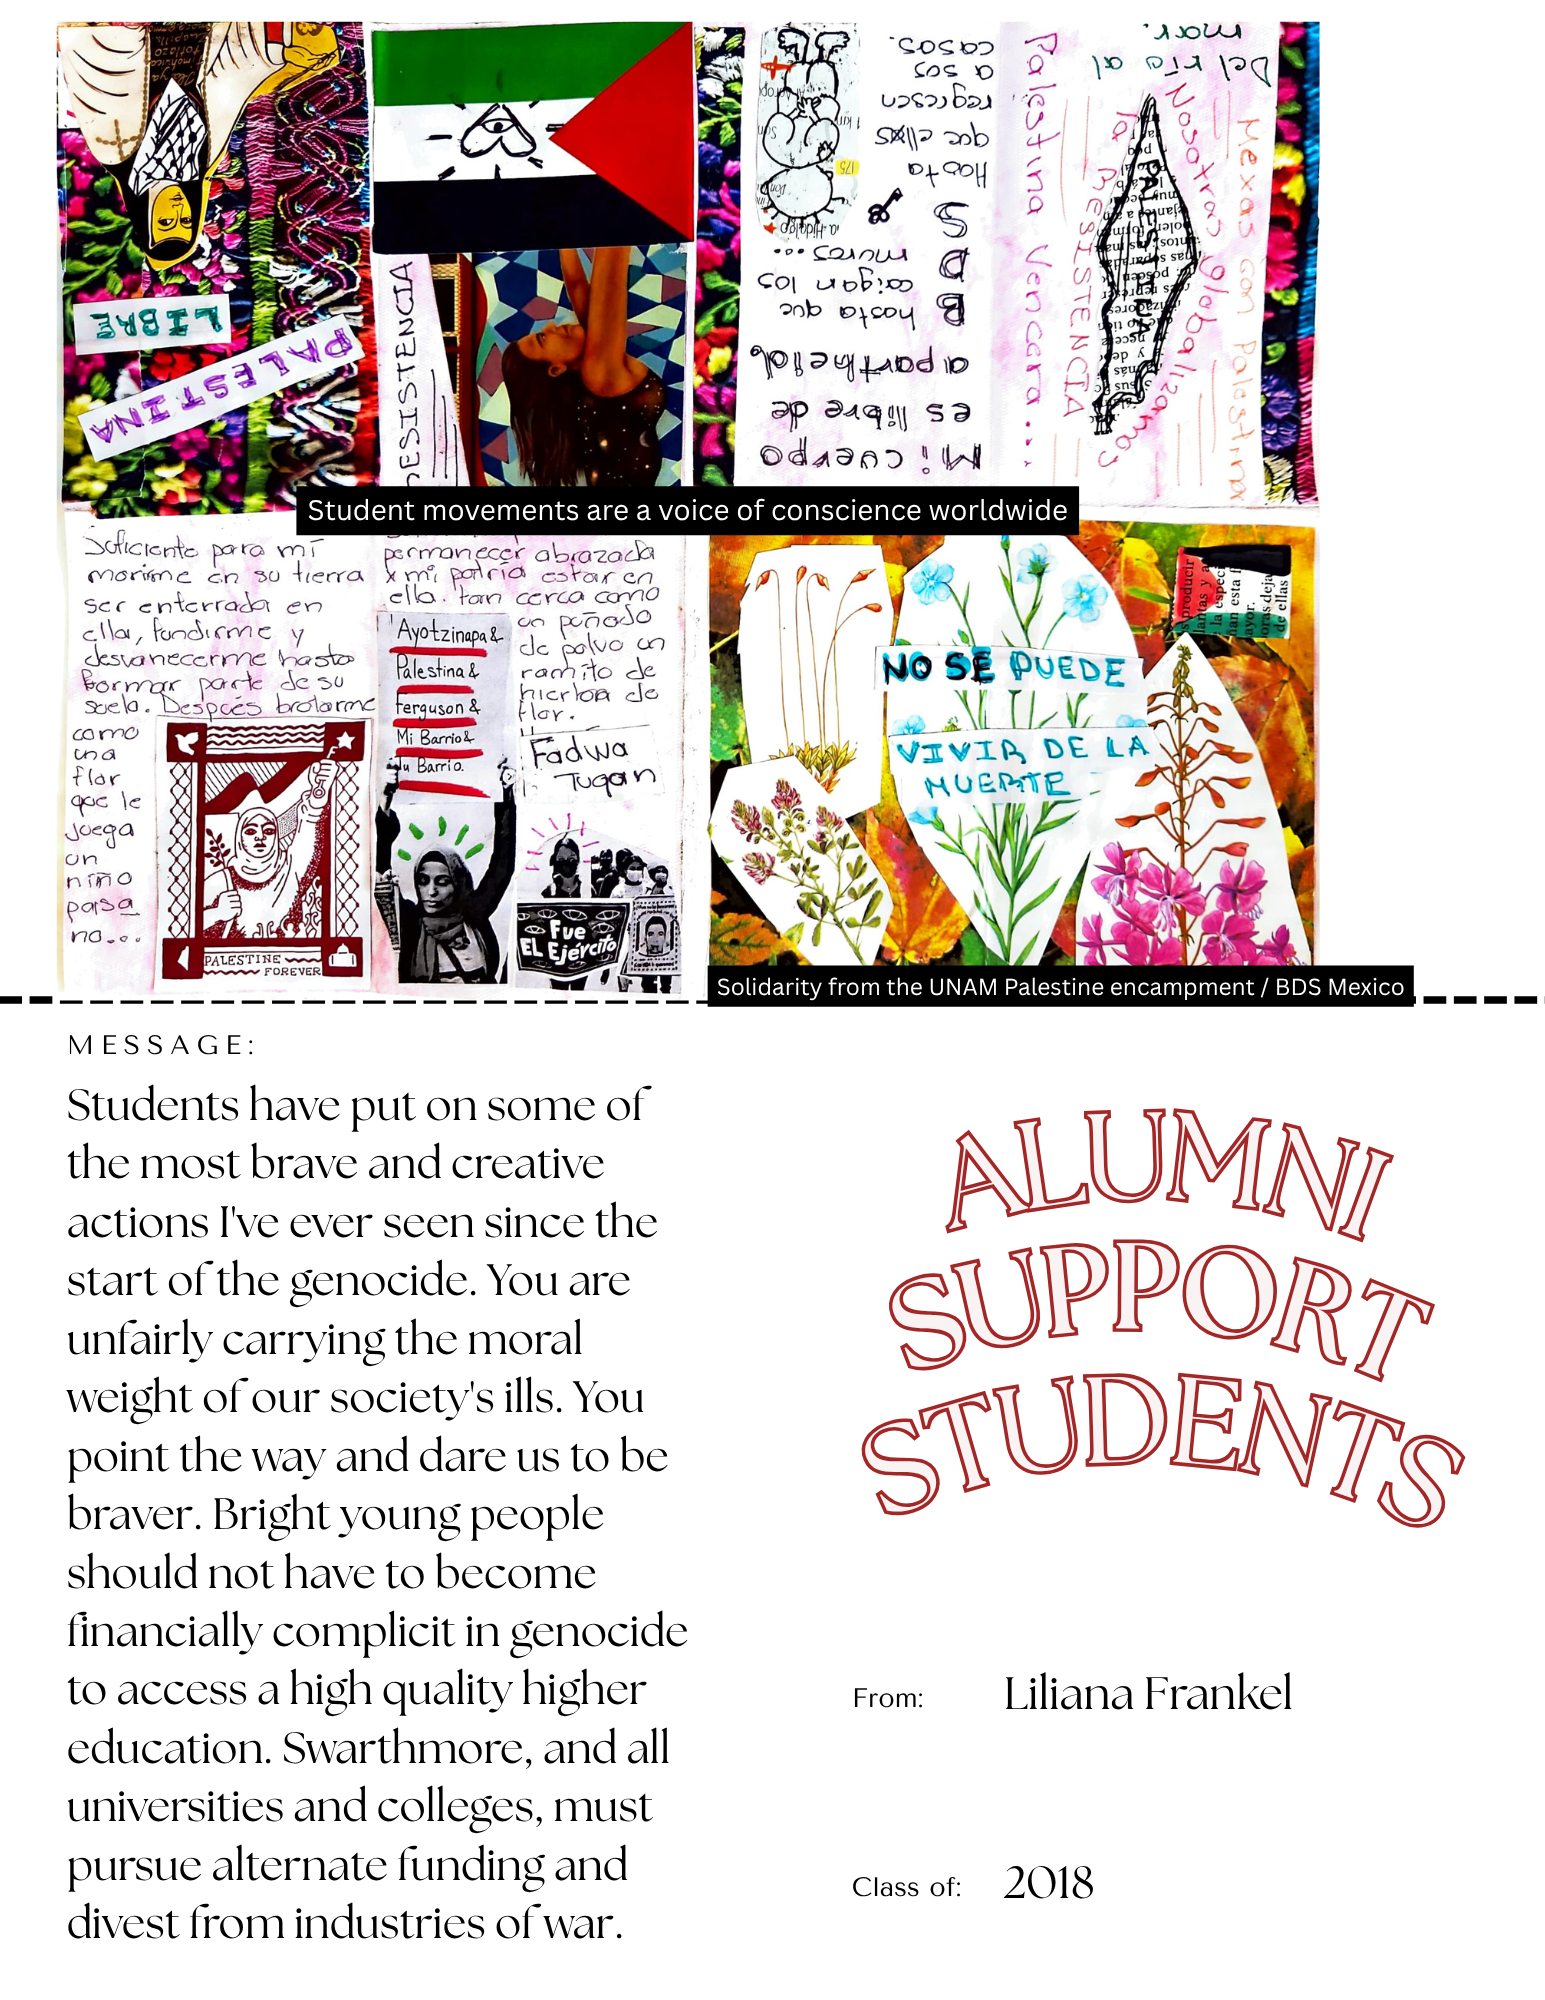 LIBRE
PALESTINA
DESISTENCIA
Mi cuerpo
es libre de
apartheid
B
hasta que
caigan los
D
muros...
S
Hasta
que ellxs
regresen
a sus
casas.
175
Palestina Vencera...
la RESISTENCIA
Nosotras globalizamos
Mexas con Palestina
Del río al
mar.
PALESTINA
Student movements are a voice of conscience worldwide
Suficiente para mí
morirme en su tierra
ser enterrada en
ella, fundirme y
desvanecerme hasta
formar parte de su
suelo. Después brotarme
como
una
flor
que le
juega
un
niño
paisa
no...
PALESTINE
FOREVER
permanecer abrazada
x mi patria estar en
ella. tan cerca como
un puñado
de polvo un
ramito de
hierba de
flor.
Fadwa
Tuqan
Ayotzinapa &
Palestina &
Ferguson &
Mi Barrio &
Tu Barrio.
Fue
EL Ejército
NO SE PUEDE
VIVIR DE LA
MUERTE
Solidarity from the UNAM Palestine encampment / BDS Mexico
MESSAGE:
Students have put on some of
the most brave and creative
actions I've ever seen since the
start of the genocide. You are
unfairly carrying the moral
weight of our society's ills. You
point the way and dare us to be
braver. Bright young people
should not have to become
financially complicit in genocide
to access a high quality higher
education. Swarthmore, and all
universities and colleges, must
pursue alternate funding and
divest from industries of war.
ALUMNI
SUPPORT
STUDENTS
From: Liliana Frankel
Class of: 2018